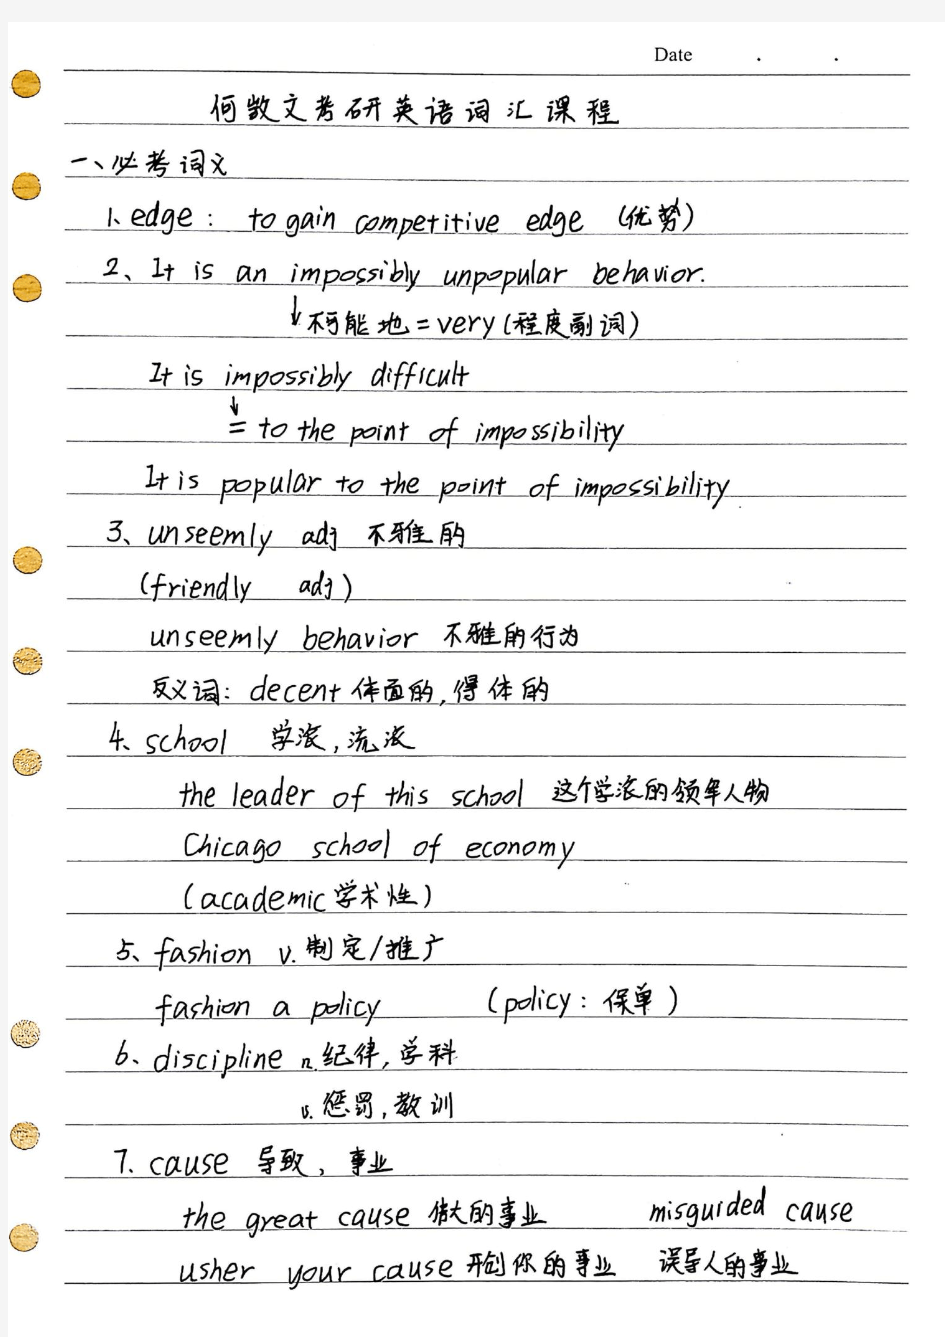 Date . .
何敳文考研英语词汇课程
一、必考词义
1、edge: to gain competitive edge (优势)
2、It is an impossibly unpopular behavior.
↓不可能地=very(程度副词)
It is impossibly difficult
↓
= to the point of impossibility
It is popular to the point of impossibility
3、unseemly adj 不雅的
(friendly adj)
unseemly behavior 不雅的行为
反义词: decent 体面的,得体的
4、school 学派,流派
the leader of this school 这个学派的领军人物
Chicago school of economy
(academic 学术性)
5、fashion v. 制定/推广
fashion a policy (policy: 保单)
6、discipline n. 纪律,学科
v. 惩罚,教训
7. cause 导致、事业
the great cause 伟大的事业 misguided cause
usher your cause 开创你的事业 误导人的事业